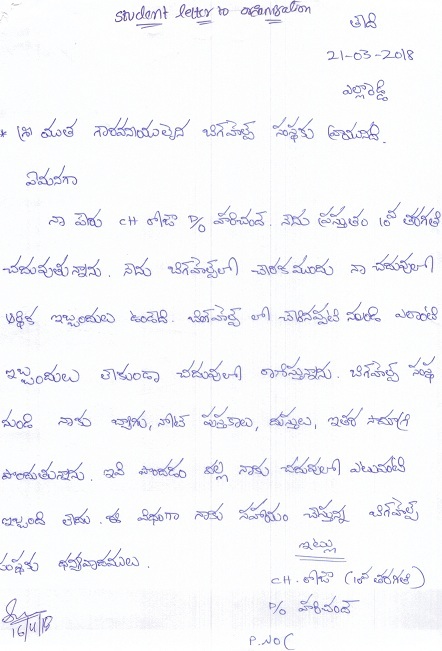 student letter to organisation
తేది
21-03-2018
ఎల్లారెడ్డి
* శ్రీ యుత గౌరవనీయులైన బిగ్‌హెల్ప్ సంస్థకు వ్రాయునది.
ఏమనగా
నా పేరు CH రోజా D/o హరిచంద్. నేను ప్రస్తుతం 10వ తరగతి
చదువుతున్నాను. నేను బిగ్‌హెల్ప్‌లో చేరకముందు నా చదువులో
ఆర్థిక ఇబ్బందులు ఉండేవి. బిగ్‌హెల్ప్ లో చేరినప్పటి నుండి ఎలాంటి
ఇబ్బందులు లేకుండా చదువులో రాణిస్తున్నాను. బిగ్‌హెల్ప్ సంస్థ
నుండి నాకు బ్యాగు, నోట్ పుస్తకాలు, దుస్తులు, ఇతర సామాగ్రి
పొందుతున్నాను. ఇవి పొందడం వల్ల నాకు చదువులో ఎటువంటి
ఇబ్బంది లేదు. ఈ విధంగా నాకు సహాయం చేస్తున్న బిగ్‌హెల్ప్
సంస్థకు ధన్యవాదములు.
ఇట్లు
CH. రోజా (10వ తరగతి)
D/o హరిచంద్
16/4/18
P.NO (